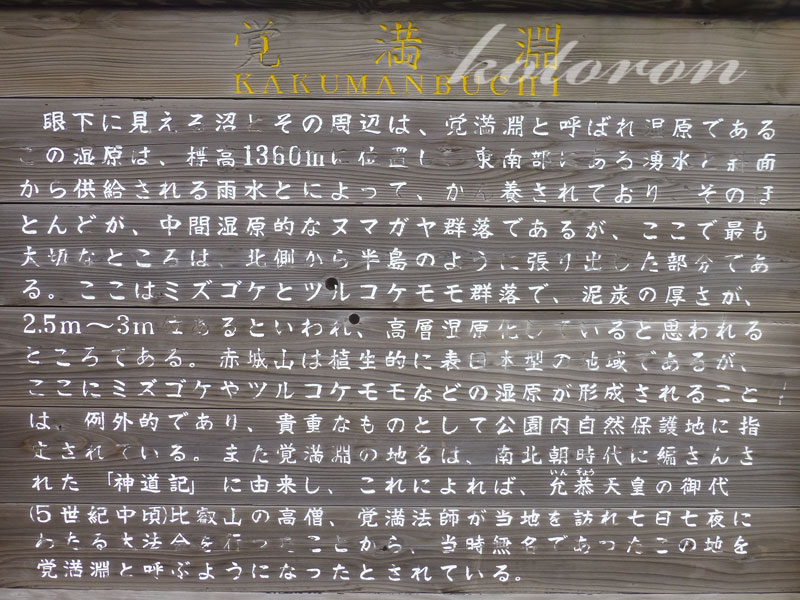 覚満淵
KAKUMANBUCHI
kotoron
眼下に見える沼とその周辺は、覚満淵と呼ばれ湿原である
この湿原は、標高1360mに位置し 東南部にある湧水と斜面
から供給される雨水とによって、かん養されており そのほ
とんどが、中間湿原的なヌマガヤ群落であるが、ここで最も
大切なところは、北側から半島のように張り出した部分であ
る。ここはミズゴケとツルコケモモ群落で、泥炭の厚さが、
2.5m〜3mであるといわれ、高層湿原化していると思われる
ところである。赤城山は植生的に表日本型の地域であるが、
ここにミズゴケやツルコケモモなどの湿原が形成されること
は、例外的であり、貴重なものとして公園内自然保護地に指
定されている。また覚満淵の地名は、南北朝時代に編さんさ
れた「神道記」に由来し、これによれば、允恭天皇の御代
いん ぎょう
(5世紀中頃)比叡山の高僧、覚満法師が当地を訪れ七日七夜に
わたる大法会を行ったことから、当時無名であったこの地を
覚満淵と呼ぶようになったとされている。